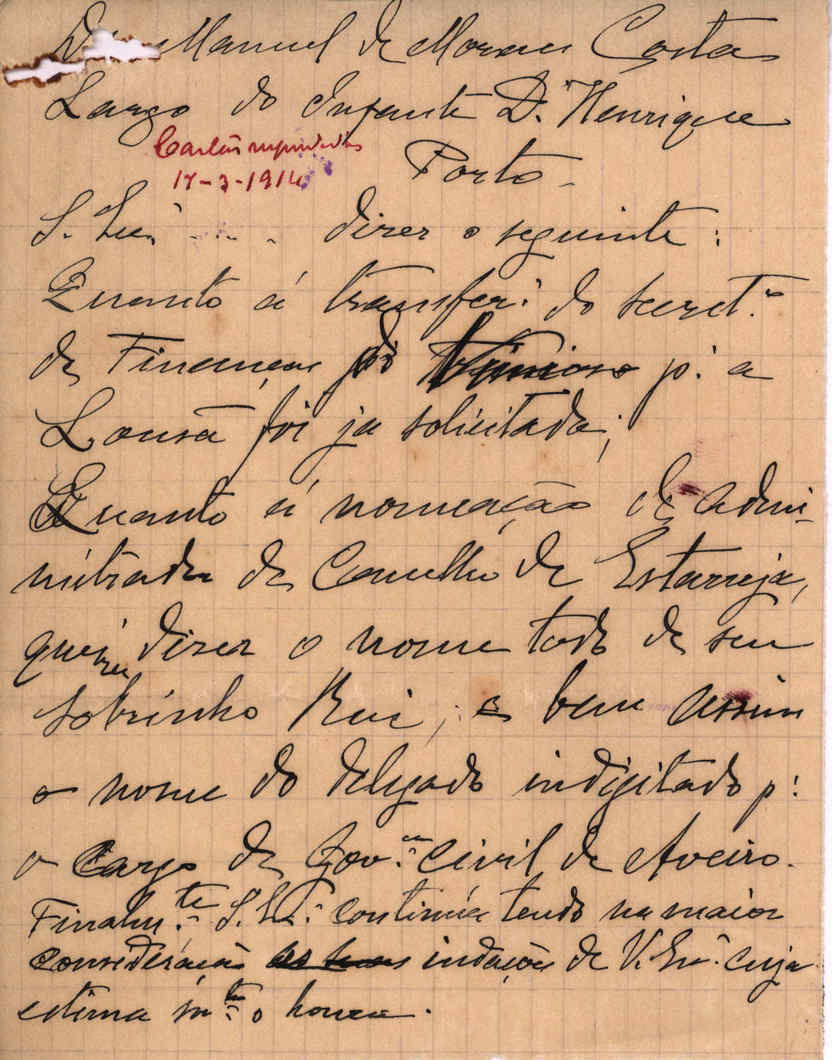 Manuel de Moraes Costa
Largo do Infante D. Henrique
Cartão respondido
17-3-1914
Porto -
S. Exª . . . dizer o seguinte:
Quanto á transferª do secretº
de Finanças p. a
Lousã foi ja solicitada;
Quanto á nomeação de admi-
nistrador do Concelho de Estarreja,
queira dizer o nome todo de seu
sobrinho Rui, e bem assim
o nome do delegado indigitado pª
o cargo de Govºr civil de Aveiro.
Finalmte S. Exª continúa tendo na maior
consideração as indicações de V. Exª cuja
estima mto o honra.